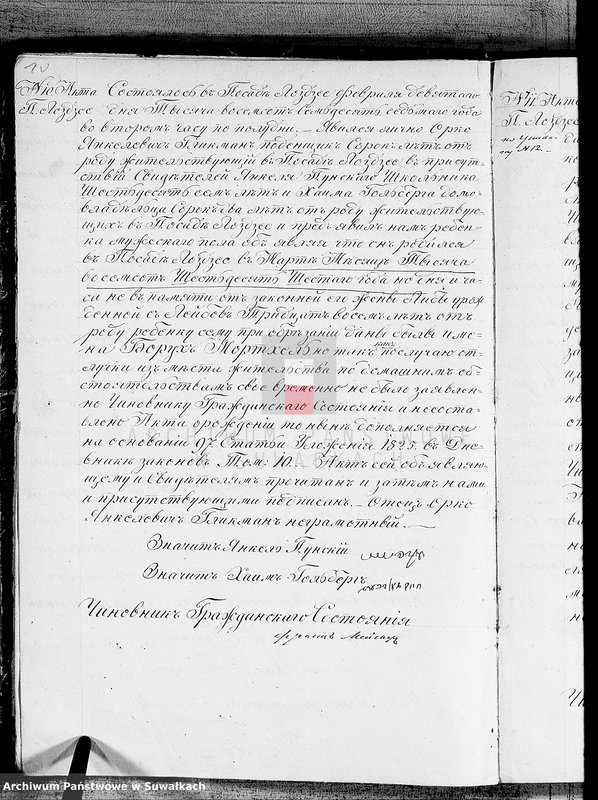 10
№10. Акта Состоялось въ Посадѣ Лоздзее февраля девятаго
П. Лоздзее дня Тысяча восемсотъ Семьдесятъ седьмаго года
во второмъ часу по полудни. — Явился лично Орко
Янкелевичъ Гликманъ поденщикъ Сорокъ лѣтъ отъ
роду жительствующій въ Посадѣ Лоздзее въ присут-
ствіи Свидѣтелей Янкеля Пунскаго Школьника
Шестьдесятъ семъ лѣтъ и Хаима Гольберга домо-
владѣльца Сорокъ два лѣтъ отъ роду жительствую-
щихъ въ Посадѣ Лоздзее и предъявилъ намъ ребен-
ка мужескаго пола объявляя что онъ родился
въ Посадѣ Лоздзее въ Мартѣ Мѣсяцѣ Тысяча
восемсотъ Шестьдесятъ Шестаго года но дня и ча-
са не въ памяти отъ законной его жены Либы урож
денной съ Лейбовъ Тридцать восемъ лѣтъ отъ
роду ребенку сему при обрѣзаніи даны были име-
на Борухъ но такъ какъ по случаю от-
лучки изъ мѣста жительства по домашнимъ об-
стоятельствамъ свое временно не было заявлен-
но Чиновнику Гражданскаго Состоянія и несостав-
лено Акта о рожденіи то нынѣ дополняется
на основаніи 97. Статьи Уложенія 1825. въ Дне-
вникѣ законовъ Томъ: 10. — Актъ сей объявляю-
щему и Свидѣтелямъ прочитанъ и затѣмъ нами
и присутствующими подписанъ. — Отецъ Орко
Янкелевичъ Гликманъ неграмотный. —
Значитъ Янкель Пунскій
Значитъ Хаимъ Гольбергъ
Чиновникъ Гражданскаго Состоянія
№11. Акта
П. Лоздзее
№12. —
Archiwum Państwowe w Suwałkach